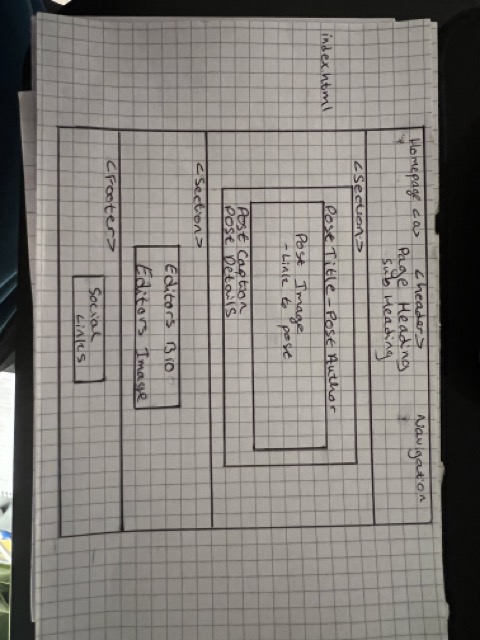 index.html
Homepage <a>
<header>
Page Heading
Sub Heading
Navigation
<Section>
Post Title - Post Author
Post Image
- Link to post
Post Caption
Post Details
<Section>
Editors Bio
Editors Image
<Footer>
Social
Links